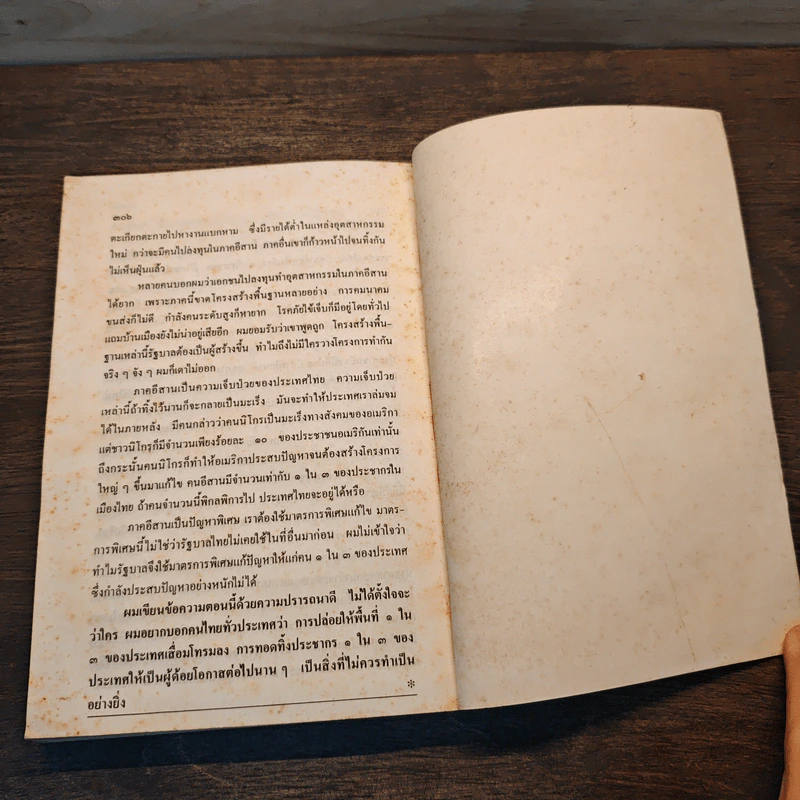 ๓๐๖
ตะเกียกตะกายไปหางานแบกหาม ซึ่งมีรายได้ต่ำในแหล่งอุตสาหกรรม
ใหม่ กว่าจะมีคนไปลงทุนในภาคอีสาน ภาคอื่นเขาก็ก้าวหน้าไปจนทิ้งกัน
ไม่เห็นฝุ่นแล้ว
หลายคนบอกผมว่าเอกชนไปลงทุนทำอุตสาหกรรมในภาคอีสาน
ได้ยาก เพราะภาคนี้ขาดโครงสร้างพื้นฐานหลายอย่าง การคมนาคม
ขนส่งก็ไม่ดี กำลังคนระดับสูงก็หายาก โรคภัยไข้เจ็บก็มีอยู่โดยทั่วไป
แถมบ้านเมืองยังไม่น่าอยู่เสียอีก ผมยอมรับว่าเขาพูดถูก โครงสร้างพื้น-
ฐานเหล่านี้รัฐบาลต้องเป็นผู้สร้างขึ้น ทำไมถึงไม่มีใครวางโครงการทำกัน
จริง ๆ จัง ๆ ผมก็เดาไม่ออก
ภาคอีสานเป็นความเจ็บป่วยของประเทศไทย ความเจ็บป่วย
เหล่านี้ถ้าทิ้งไว้นานก็จะกลายเป็นมะเร็ง มันจะทำให้ประเทศเราล่มจม
ได้ในภายหลัง มีคนกล่าวว่าคนนิโกรเป็นมะเร็งทางสังคมของอเมริกา
แต่ชาวนิโกรก็มีจำนวนเพียงร้อยละ ๑๐ ของประชาชนอเมริกันเท่านั้น
ถึงกระนั้นคนนิโกรก็ทำให้อเมริกาประสบปัญหาจนต้องสร้างโครงการ
ใหญ่ ๆ ขึ้นมาแก้ไข คนอีสานมีจำนวนเท่ากับ ๑ ใน ๓ ของประชากรใน
เมืองไทย ถ้าคนจำนวนนี้พิกลพิการไป ประเทศไทยจะอยู่ได้หรือ
ภาคอีสานเป็นปัญหาพิเศษ เราต้องใช้มาตรการพิเศษแก้ไข มาตร-
การพิเศษนี้ไม่ใช่ว่ารัฐบาลไทยไม่เคยใช้ในที่อื่นมาก่อน ผมไม่เข้าใจว่า
ทำไมรัฐบาลจึงใช้มาตรการพิเศษแก้ปัญหาให้แก่คน ๑ ใน ๓ ของประเทศ
ซึ่งกำลังประสบปัญหาอย่างหนักไม่ได้
ผมเขียนข้อความตอนนี้ด้วยความปรารถนาดี ไม่ได้ตั้งใจจะ
ว่าใคร ผมอยากบอกคนไทยทั่วประเทศว่า การปล่อยให้พื้นที่ ๑ ใน
๓ ของประเทศเสื่อมโทรมลง การทอดทิ้งประชากร ๑ ใน ๓ ของ
ประเทศให้เป็นผู้ด้อยโอกาสต่อไปนาน ๆ เป็นสิ่งที่ไม่ควรทำเป็น
อย่างยิ่ง
*